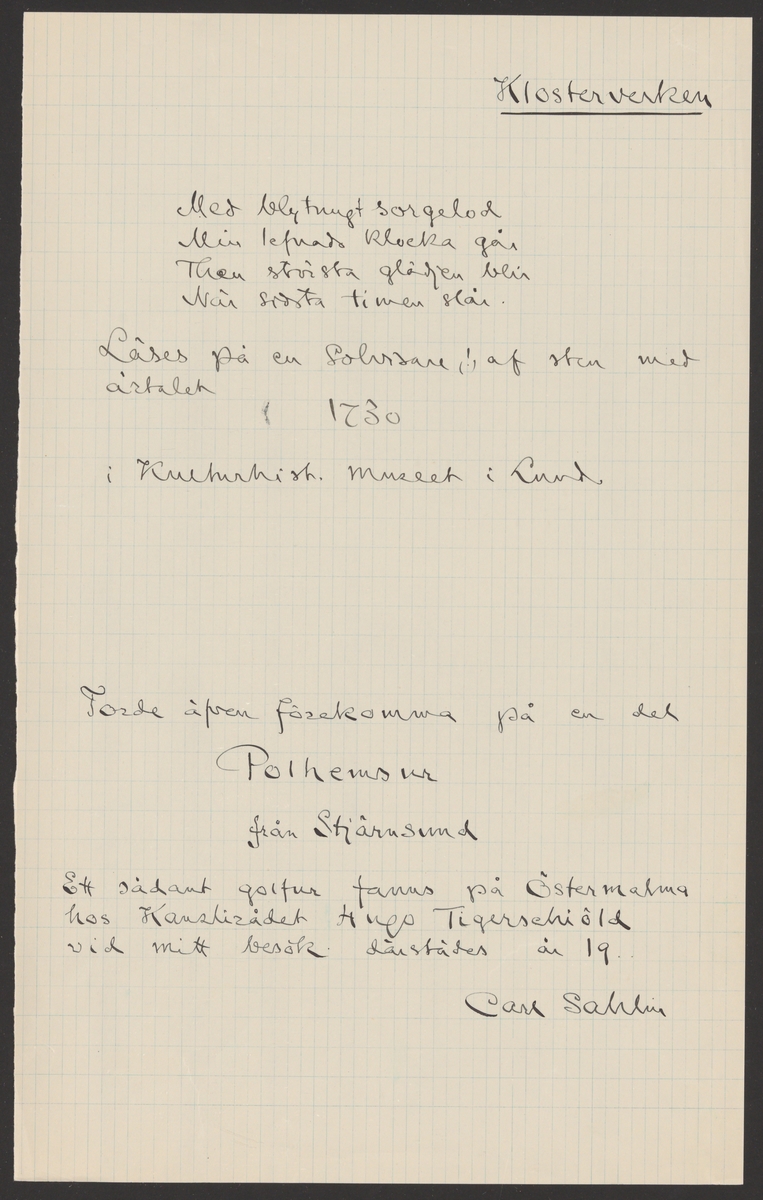 Klosterverken
Med blytungt sorgelod
Min lefnads klocka går
Then största glädjen blir
När sidsta timen slår.
Läses på en Solvisare, (!) af sten med
årtalet
1730
i Kulturhist. museet i Lund.
Torde äfven förekomma på en del
Polhemsur
från Stjärnsund
Ett sådant golfur fanns på Östermalma
hos Kanslirådet Hugo Tigerschiöld
vid mitt besök därstädes år 19..
Carl Sahlin